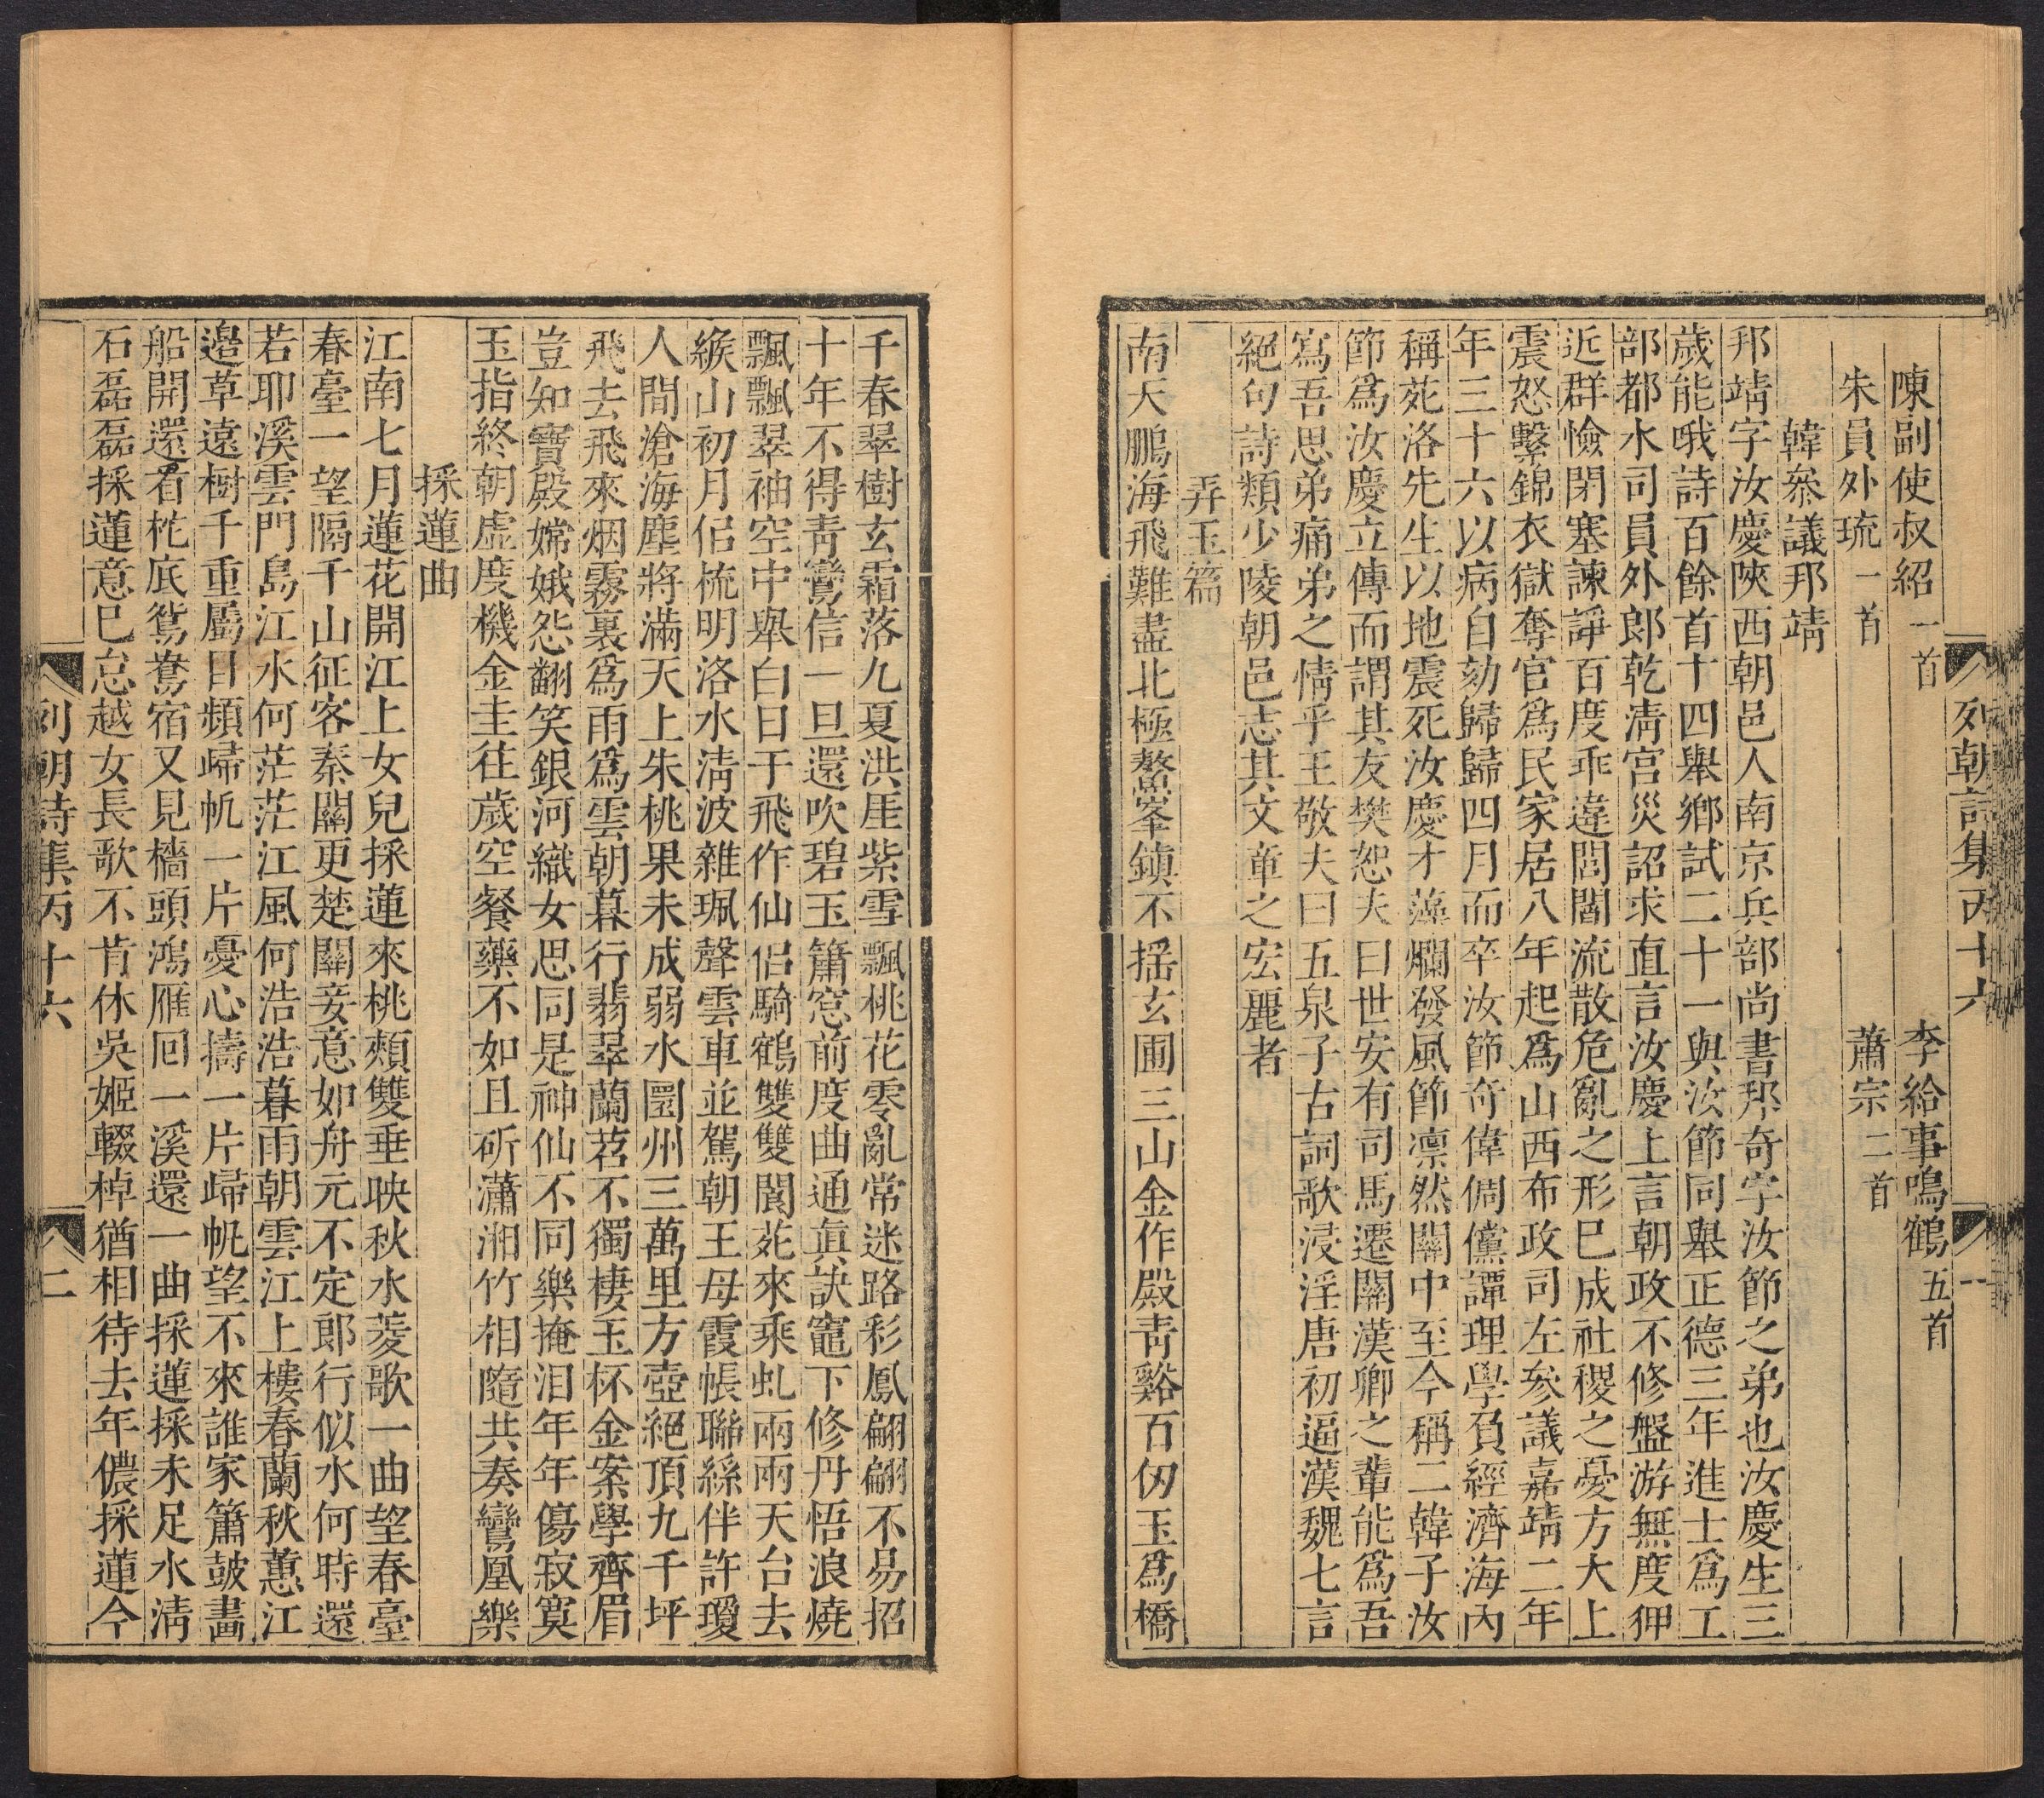 列朝詩集丙十六
一
陳副使叔紹一首
李給事鳴鶴五首
朱員外琉一首
蕭宗二首
韓叅議邦靖
邦靖字汝慶陝西朝邑人南京兵部尚書邦奇字汝節之弟也汝慶生三
歲能哦詩百餘首十四舉鄉試二十一與汝節同舉正德三年進士爲工
部都水司員外郎乾清宮災詔求直言汝慶上言朝政不修盤游無度狎
近群憸閉塞諫諍百度乖違閭閻流散危亂之形巳成社稷之憂方大上
震怒繫錦衣獄奪官爲民家居八年起爲山西布政司左叅議嘉靖二年
年三十六以病自劾歸歸四月而卒汝節奇偉倜儻譚理學負經濟海內
稱苑洛先生以地震死汝慶才藻爛發風節凛然關中至今稱二韓子汝
節爲汝慶立傳而謂其友樊恕夫曰世安有司馬遷關漢卿之輩能爲吾
寫吾思弟痛弟之情乎王敬夫曰五泉子古詞歌浸淫唐初逼漢魏七言
絕句詩類少陵朝邑志其文章之宏麗者
弄玉篇
南天鵬海飛難盡北極鰲峯鎮不揺玄圃三山金作殿青谿百仭玉爲橋
千春翠樹玄霜落九夏洪厓紫雪飄桃花零亂常迷路彩鳳翩翩不易招
十年不得青鸞信一旦還吹碧玉簫窓前度曲通眞訣竈下修丹悟浪燒
飄飄翠袖空中舉白日于飛作仙侣騎鶴雙雙閬苑來乘虬兩兩天台去
緱山初月侣梳明洛水清波雜珮聲雲車並駕朝王母霞帳聯絲伴許瓊
人間滄海塵將滿天上朱桃果未成弱水圜州三萬里方壺絕頂九千坪
飛去飛來烟霧裏爲雨爲雲朝暮行翡翠蘭苕不獨棲玉杯金案學齊眉
豈如寶殿嫦娥怨翻笑銀河織女思同是神仙不同樂掩泪年年傷寂寞
玉指終朝虛度機金圭往歲空餐藥不如且斫瀟湘竹相隨共奏鸞凰樂
採蓮曲
江南七月蓮花開江上女兒採蓮來桃頰雙垂映秋水菱歌一曲望春臺
春臺一望隔千山征客秦關更楚關妾意如舟元不定郎行似水何時還
若耶溪雲門島江水何茫茫江風何浩浩暮雨朝雲江上樓春蘭秋蕙江
邉草遠樹千重屬目頻歸帆一片憂心擣一片歸帆望不來誰家簫鼓畵
船開還看柁底鴛鴦宿又見檣頭鴻雁囘一溪還一曲採蓮採未足水清
石磊磊採蓮意巳怠越女長歌不肯休吳姬輟棹猶相待去年儂採蓮今
列朝詩集丙十六
二